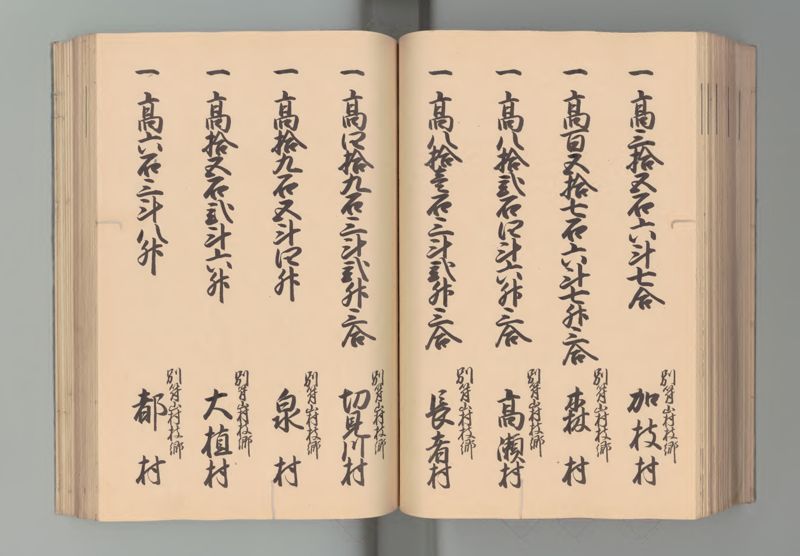 一 高三拾五石六斗七合
別符山村枝郷
加枝村
一 高百五拾七石六斗七升三合
別符山村枝郷
森村
一 高八拾弐石四斗六升三合
別符山村枝郷
高瀬村
一 高八拾壱石三斗弐升三合
別符山村枝郷
長者村
一 高四拾九石三斗弐升三合
別符山村枝郷
切見川村
一 高拾九石五斗四升
別符山村枝郷
泉村
一 高拾五石弐斗六升
別符山村枝郷
大植村
一 高六石三斗八升
別符山村枝郷
都村